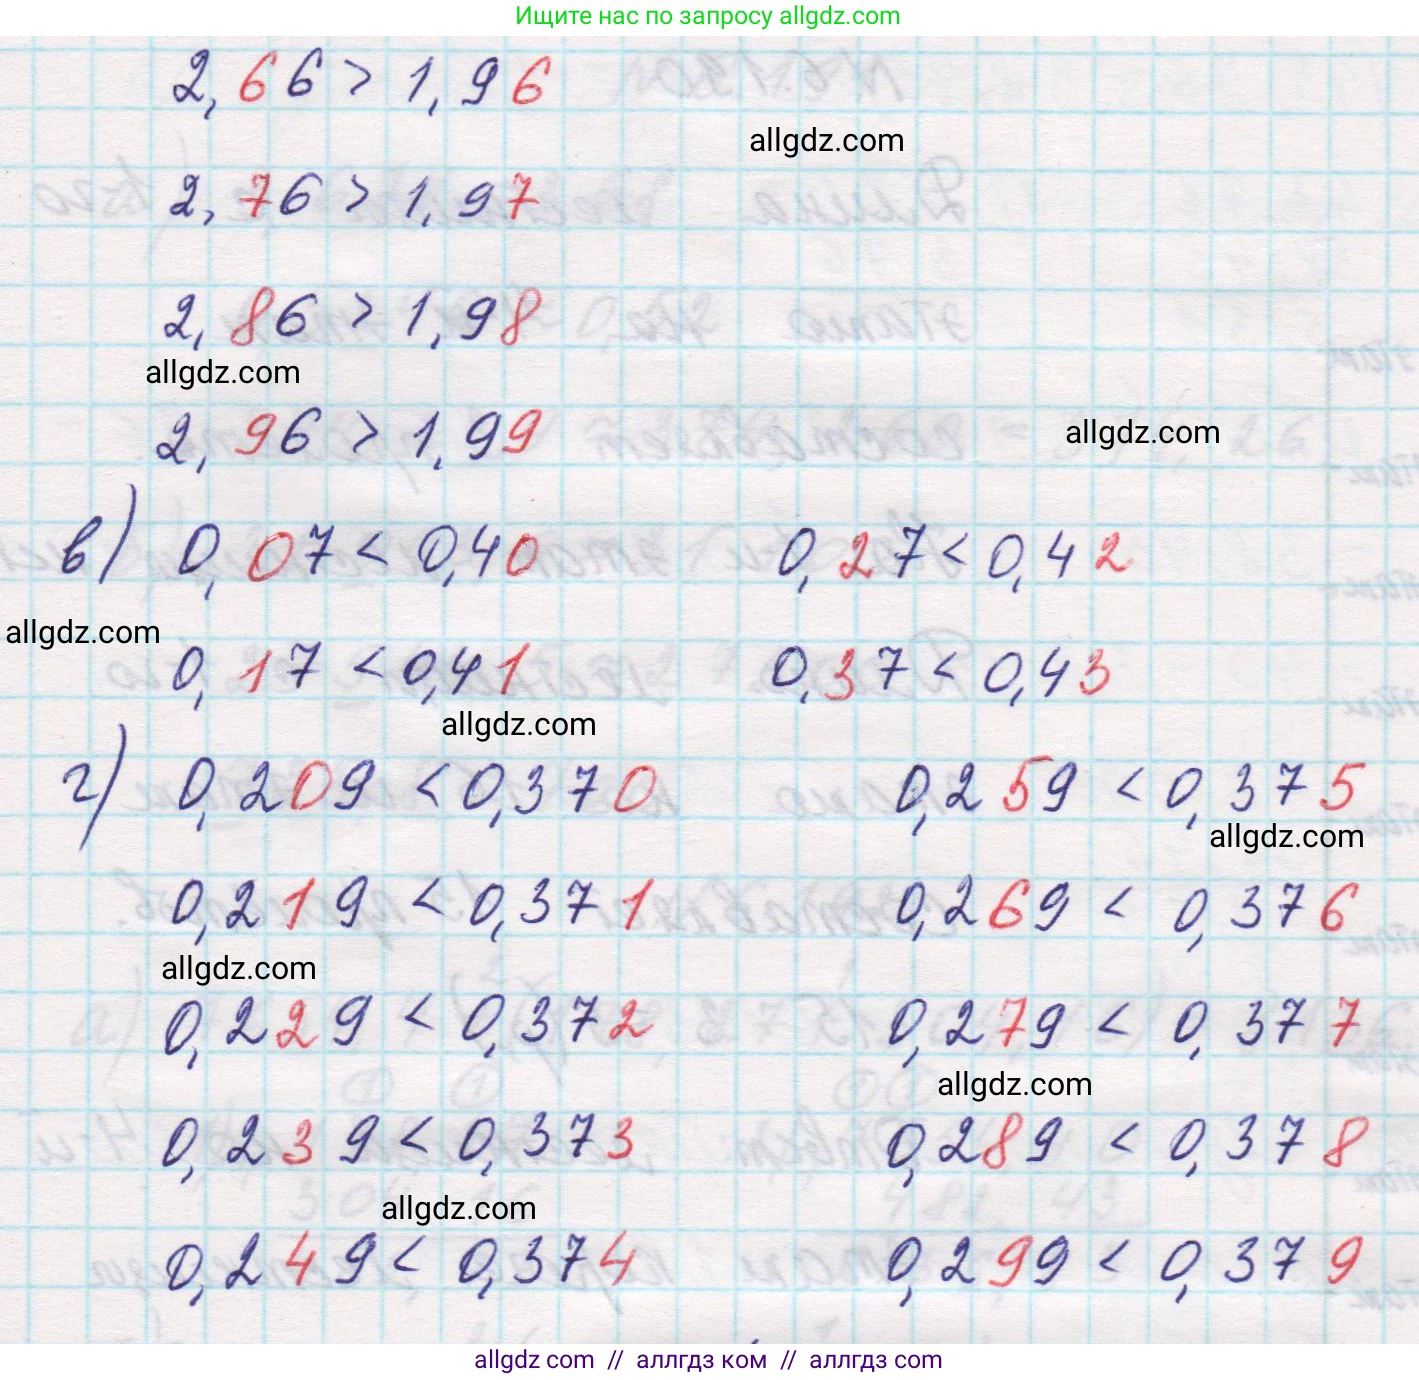 Ищите нас по запросу allgdz.com
2,66 > 1,96
allgdz.com
2,76 > 1,97
2,86 > 1,98
allgdz.com
2,96 > 1,99
allgdz.com
в) 0,07 < 0,40 0,27 < 0,42
allgdz.com
0,17 < 0,41 0,37 < 0,43
allgdz.com
г) 0,209 < 0,370 0,259 < 0,375
allgdz.com
0,219 < 0,371 0,269 < 0,376
allgdz.com
0,229 < 0,372 0,279 < 0,377
allgdz.com
0,239 < 0,373 0,289 < 0,378
allgdz.com
0,249 < 0,374 0,299 < 0,379
allgdz com // аллгдз ком // аллгдз com